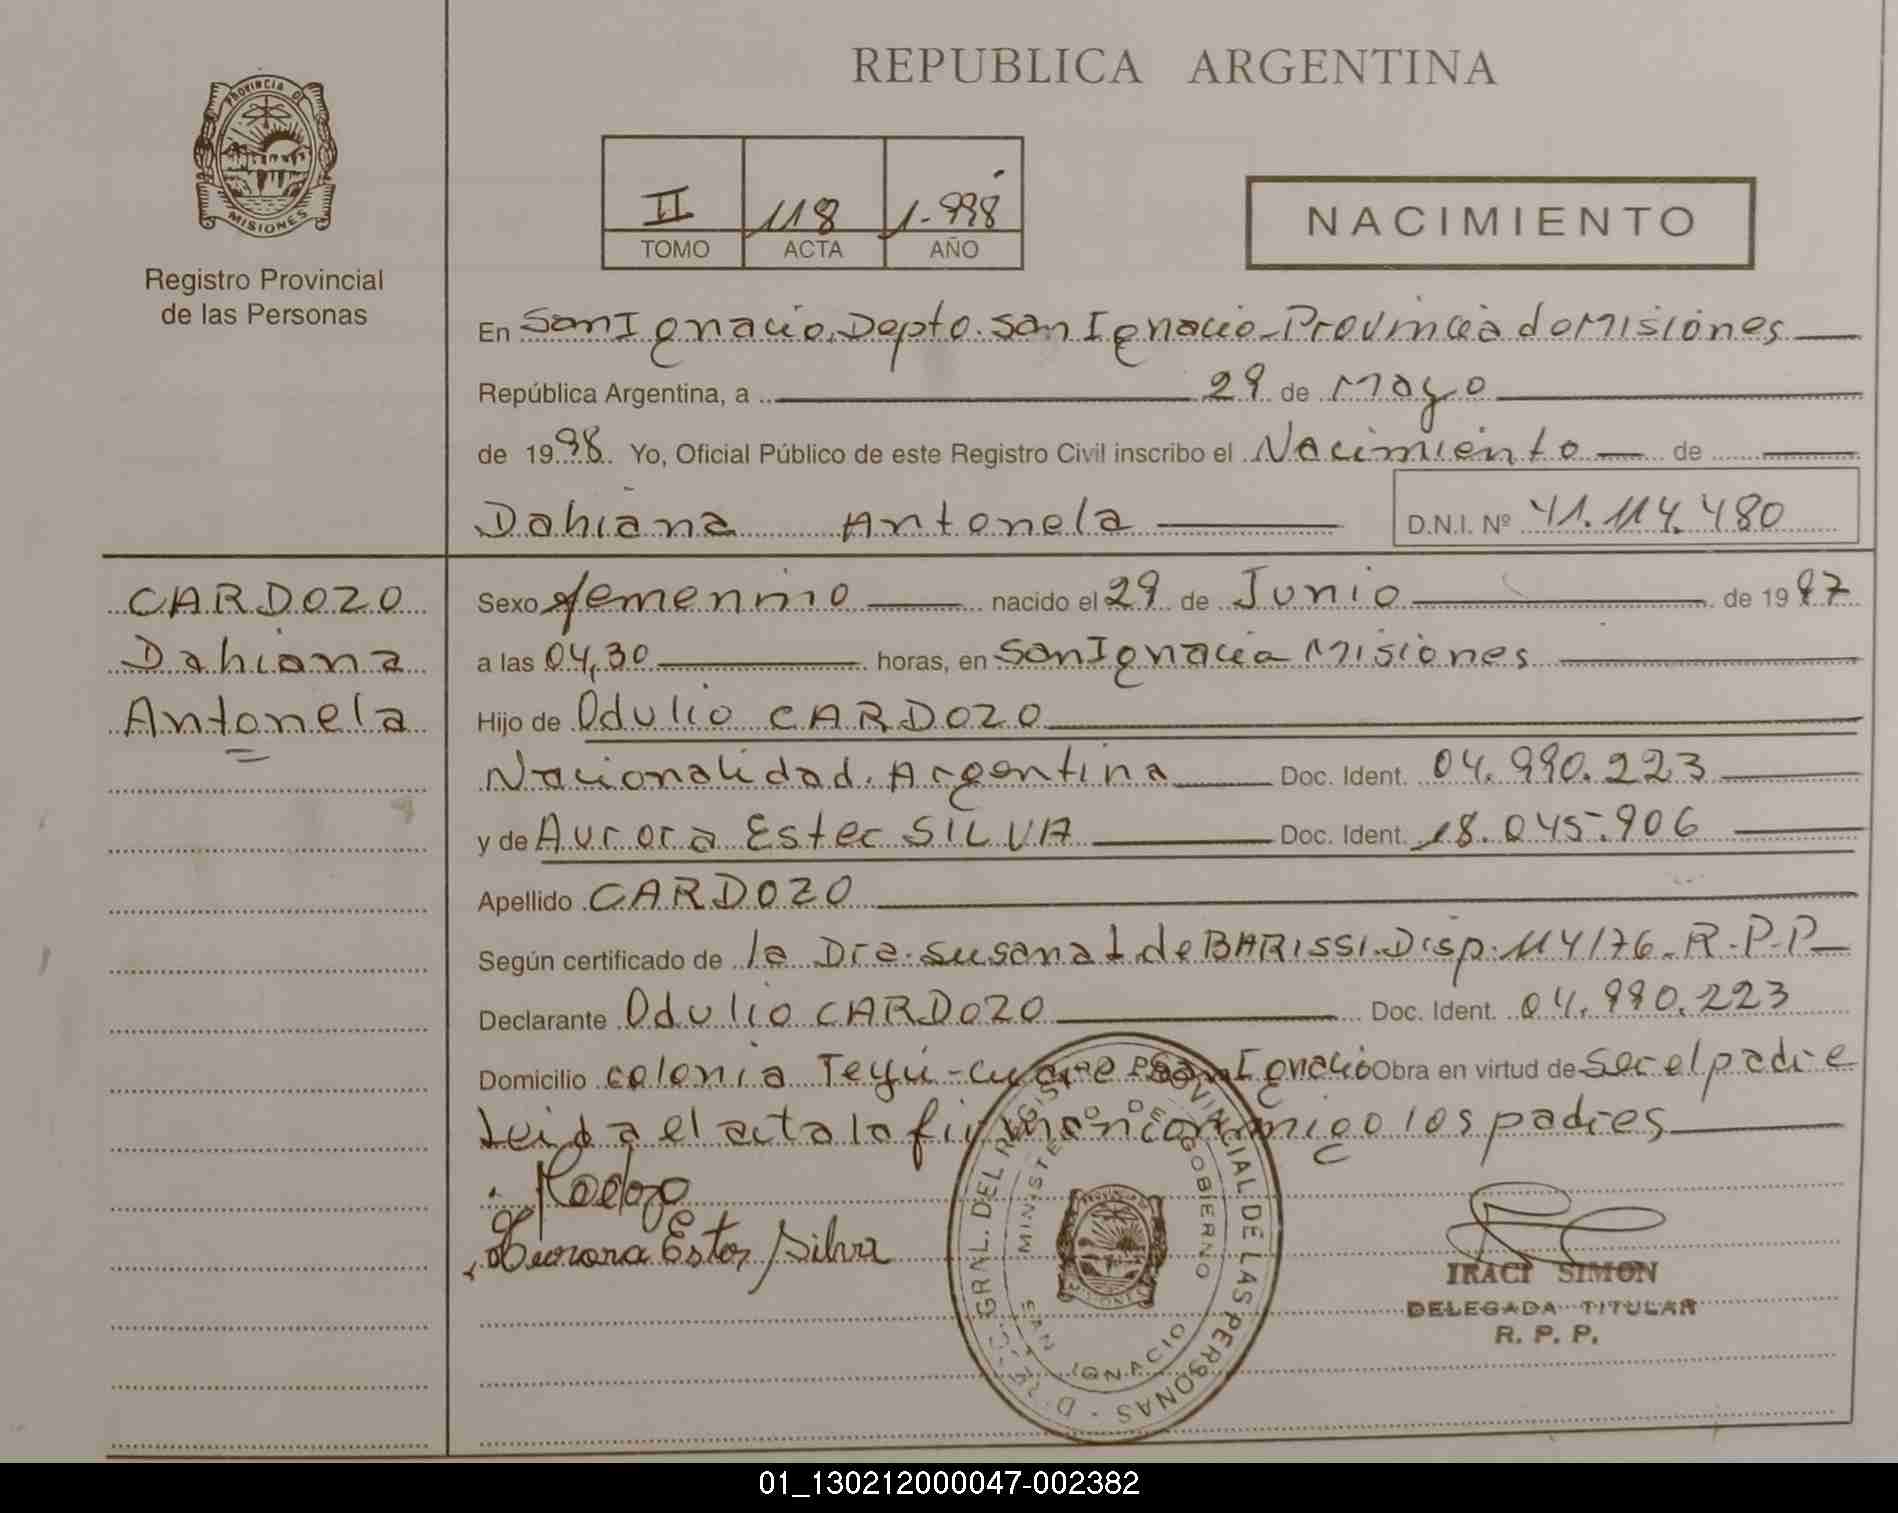 REPUBLICA ARGENTINA
PROVINCIA DE
MISIONES
Registro Provincial
de las Personas
II 118 1.998
TOMO ACTA AÑO
NACIMIENTO
En San Ignacio, Depto. San Ignacio - Provincia de Misiones
República Argentina, a 29 de Mayo
de 1998. Yo, Oficial Público de este Registro Civil inscribo el Nacimiento de
Dahiana Antonela D.N.I. Nº 41.114.480
CARDOZO
Dahiana
Antonela
Sexo femenino nacido el 29 de Junio de 1997
a las 04,30 horas, en San Ignacio Misiones
Hijo de Odulio CARDOZO
Nacionalidad. Argentina Doc. Ident. 04.990.223
y de Aurora Ester SILVA Doc. Ident. 18.045.906
Apellido CARDOZO
Según certificado de la Dra. Susana L. de BARISSI. Disp. 114/76. R.P.P
Declarante Odulio CARDOZO Doc. Ident. 04.990.223
Domicilio colonia Teyú-cuare San Ignacio Obra en virtud de ser el padre
Leida el acta la firman conmigo los padres
Aurora Ester Silva
GRAL. DEL REGISTRO PROVINCIAL DE LAS PERSONAS
MINISTERIO DE GOBIERNO
SAN IGNACIO
IRACI SIMON
DELEGADA TITULAR
R. P. P.
01_130212000047-002382